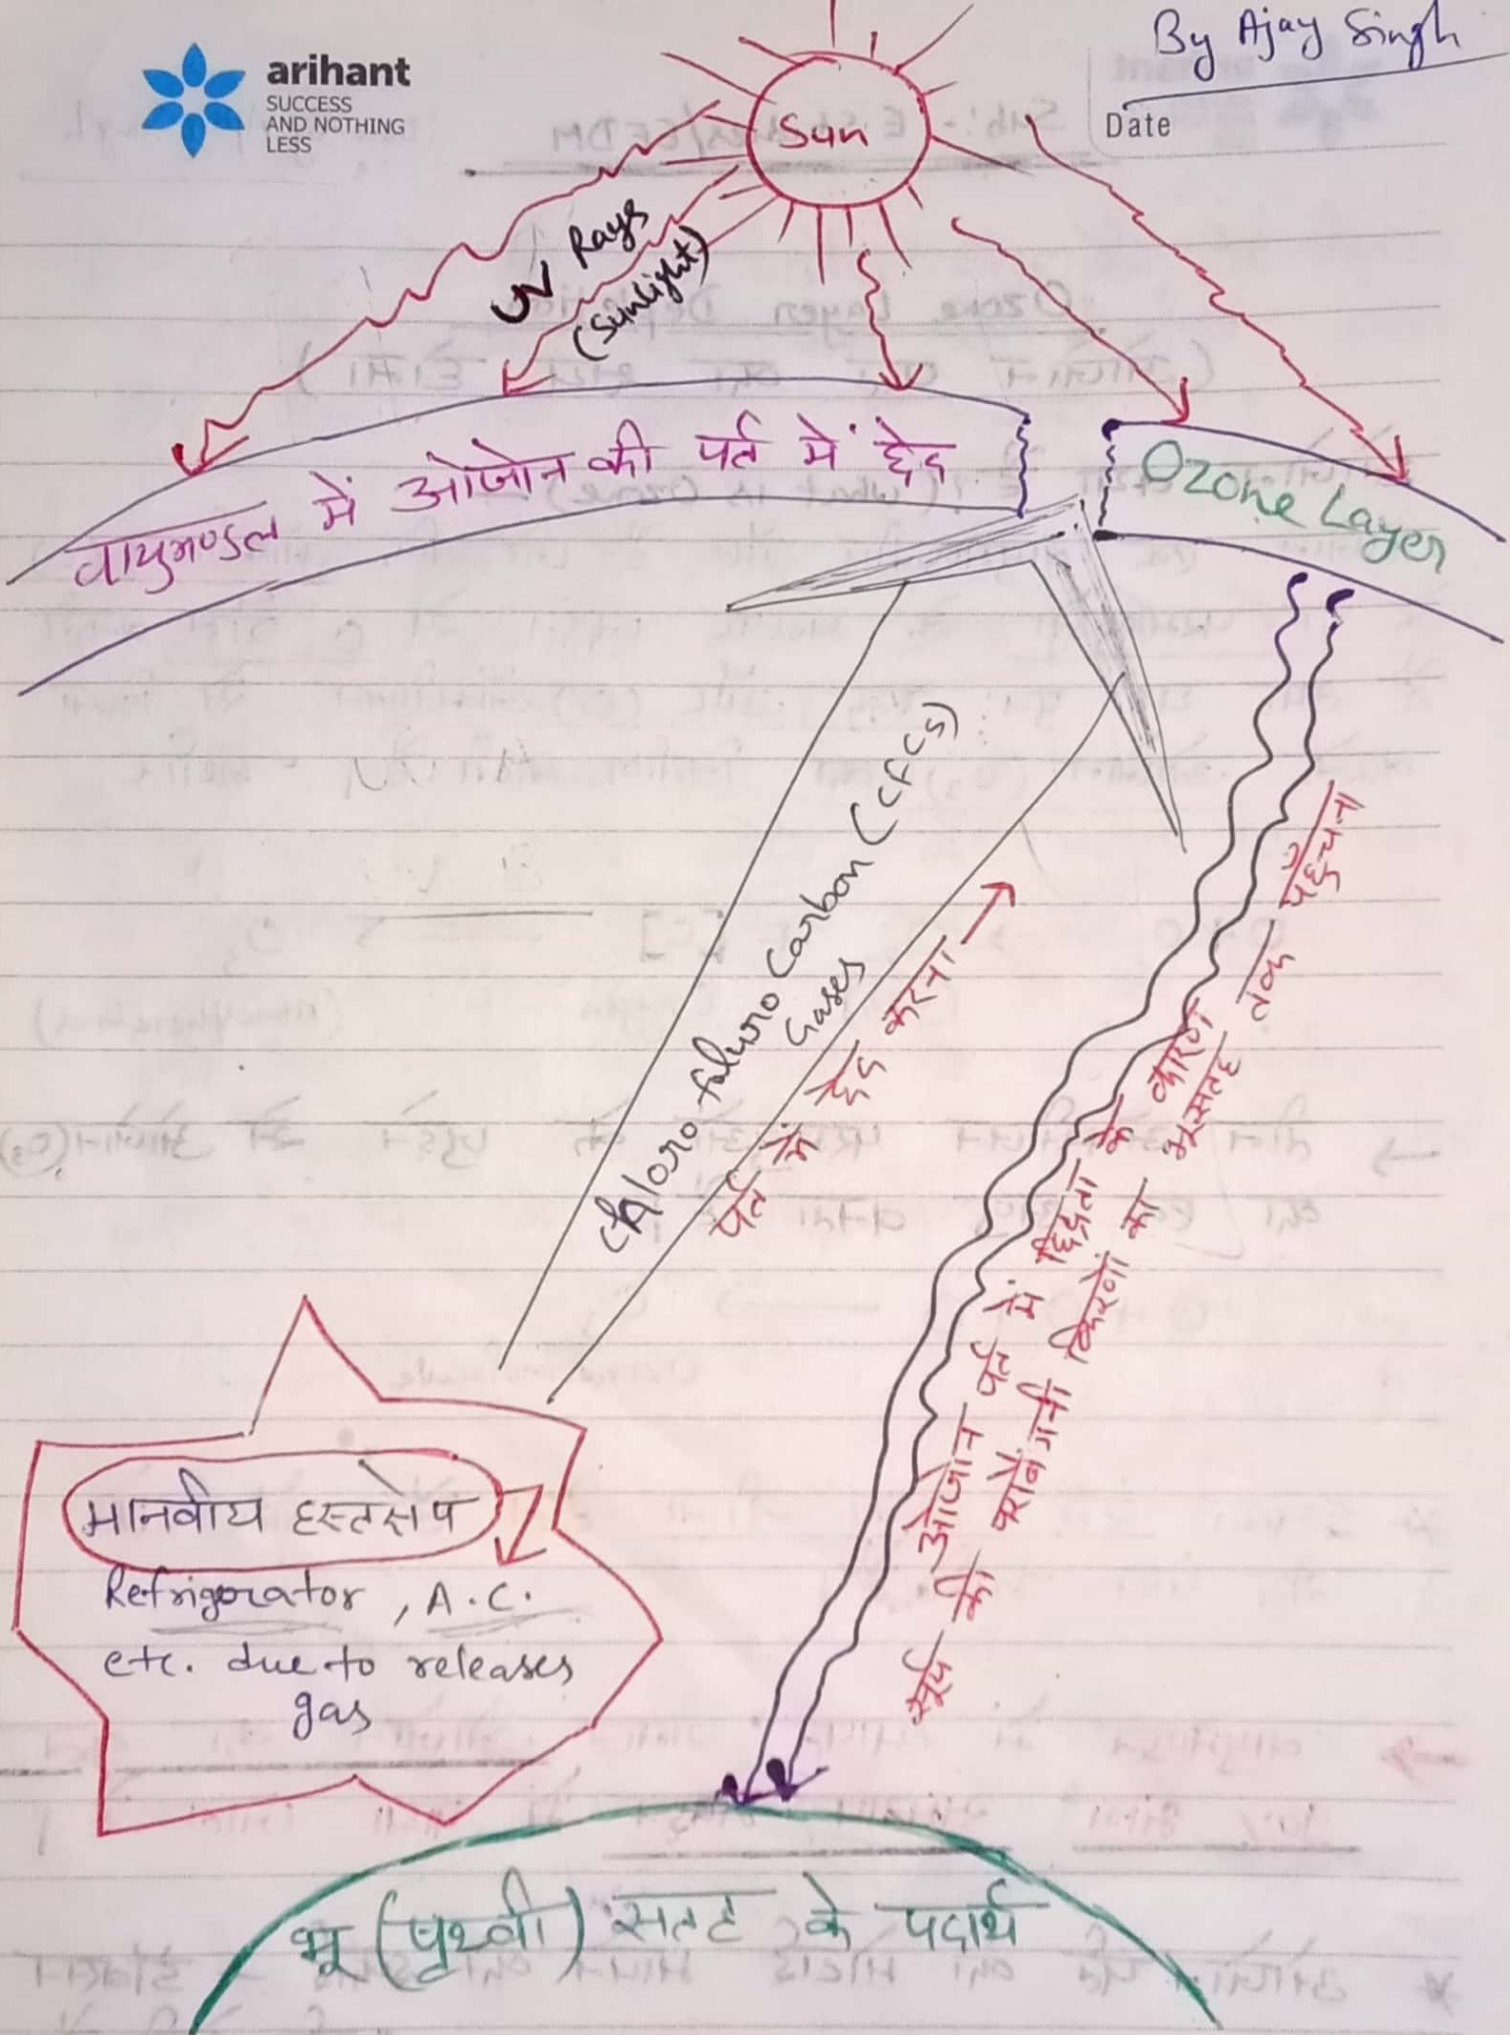 arihant
SUCCESS
AND NOTHING
LESS
By Ajay Singh
Date
Sun
UV Rays
(Sunlight)
वायुमण्डल में ओजोन की पर्त में छेद
Ozone Layer
Chloro faluro Carbon (CFCs)
Gases
पर्त में छेद करना →
ओजोन पर्त में छिद्रता के कारण
सूर्य की पराबैंगनी किरणों का भूसतह तक पहुँचना
मानवीय हस्तक्षेप
Refrigerator, A.C.
etc. due to releases
gas
भू (पृथ्वी) सतह के पदार्थ